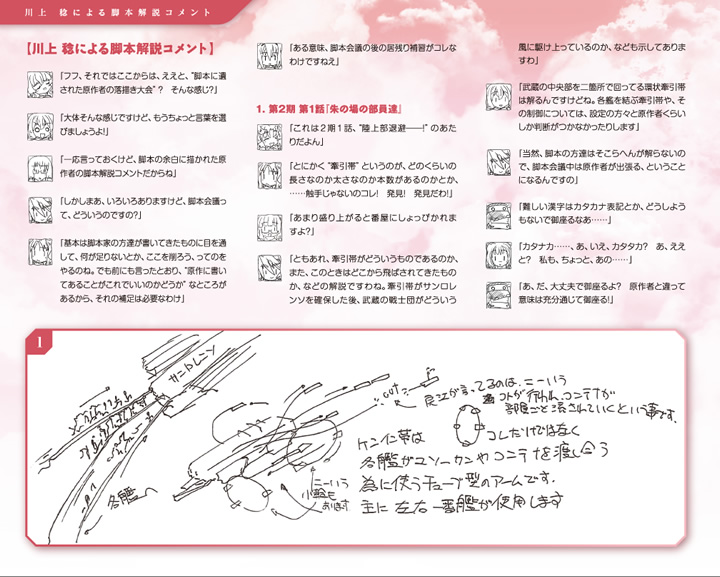 川上 稔による脚本解説コメント
【川上 稔による脚本解説コメント】
「フフ、それではここからは、ええと、“脚本に遺
された原作者の落描き大会”？ そんな感じ？」
「大体そんな感じですけど、もうちょっと言葉を選
びましょうよ！」
「一応言っておくけど、脚本の余白に描かれた原
作者の脚本解説コメントだからね」
「しかしまあ、いろいろありますけど、脚本会議っ
て、どういうのですの？」
「基本は脚本家の方達が書いてきたものに目を通
して、何が足りないとか、ここを削ろう、ってのを
やるのね。でも前にも言ったとおり、“原作に書い
てあることがこれでいいのかどうか”なところが
あるから、それの補足は必要なわけ」
「ある意味、脚本会議の後の居残り補習がコレな
わけですねえ」
1. 第2期 第1話『朱の場の部員達』
「これは２期１話、“陸上部退避――！”のあた
りだよん」
「とにかく“牽引帯”というのが、どのくらいの
長さなのか太さなのか本数があるのかとか、
……触手じゃないのコレ！ 発見！ 発見だわ！」
「あまり盛り上がると番屋にしょっぴかれま
すよ？」
「ともあれ、牽引帯がどういうものであるのか、
また、このときはどこから飛ばされてきたもの
か、などの解説ですわね。牽引帯がサンロレ
ンソを確保した後、武蔵の戦士団がどういう
風に駆け上っているのか、なども示してありま
すわ」
「武蔵の中央部を二箇所で回ってる環状牽引帯
は解るんですけどね。各艦を結ぶ牽引帯や、そ
の制御については、設定の方々と原作者くらい
しか判断がつかなかったりします」
「当然、脚本の方達はそこらへんが解らないの
で、脚本会議中は原作者が出張る、ということ
になるんですの」
「難しい漢字はカタカナ表記とか、どうしよう
もないで御座るなあ……」
「カタナカ……、あ、いえ、カタタカ？ あ、ええ
と？ 私も、ちょっと、あの……」
「あ、だ、大丈夫で御座るよ？ 原作者と違って
意味は充分通じて御座る！」
1
サンロレンソ
各艦へ
OUT
こーいう
小艦も
あります
コトが行われ、コンテナが
部屋ごと流されていくという事です。
コレだけではなく
ケンイン帯は
各艦がユソーカンやコンテナを渡し合う
為に使うチューブ型のアームです。
主に左右一番艦が使用します